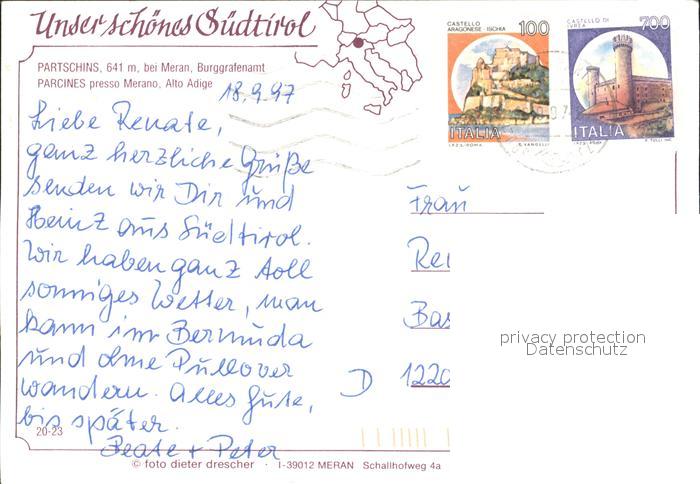 Unser schönes Südtirol
PARTSCHINS, 641 m, bei Meran, Burggrafenamt
PARCINES presso Merano, Alto Adige
18.9.97
Liebe Renate,
ganz herzliche Grüße
senden wir Dir und
Heinz aus Südtirol.
Wir haben ganz toll
sonniges Wetter, man
kann im Bermuda
und ohne Pullover
wandern. Alles Gute,
bis später.
Beate + Peter
20-23
© foto dieter drescher · I-39012 MERAN Schallhofweg 4a
CASTELLO
ARAGONESE - ISCHIA
100
ITALIA
I.P.Z.S. - ROMA E. VANGELLI
CASTELLO DI
IVREA
700
ITALIA
I.P.Z.S. - ROMA
Frau
Re
Bas
D 1220
privacy protection
Datenschutz